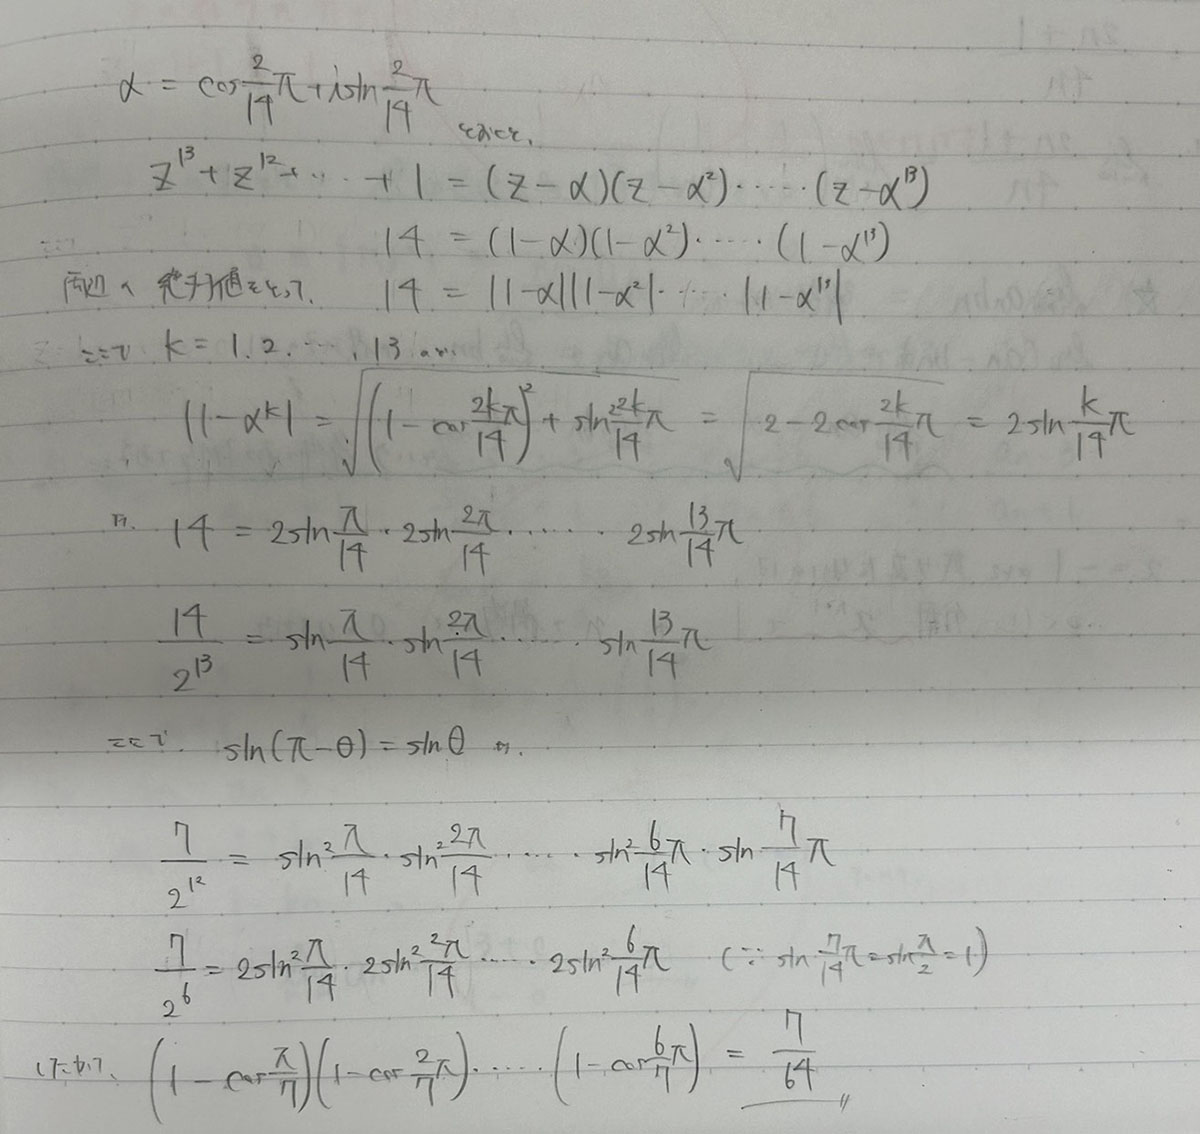 α = cos 2/14 π + i sin 2/14 π
とおくと、
z^13 + z^12 + ... + 1 = (z - α)(z - α^2) ..... (z - α^13)
14 = (1 - α)(1 - α^2) ..... (1 - α^13)
両辺の絶対値をとって、 14 = |1 - α||1 - α^2| ..... |1 - α^13|
ここで k = 1. 2. .... . 13
|1 - α^k| = √((1 - cos 2kπ/14)^2 + sin^2 2k/14 π) = √(2 - 2cos 2k/14 π) = 2sin k/14 π
14 = 2sin π/14 · 2sin 2π/14 ..... 2sin 13/14 π
14/2^13 = sin π/14 · sin 2π/14 ..... sin 13/14 π
ここで. sin(π - θ) = sin θ
7/2^12 = sin^2 π/14 · sin^2 2π/14 ..... sin^2 6/14 π · sin 7/14 π
7/2^6 = 2sin^2 π/14 · 2sin^2 2π/14 ..... 2sin^2 6/14 π (∵ sin 7/14 π = sin π/2 = 1)
したがって、 (1 - cos π/7)(1 - cos 2/7 π) ..... (1 - cos 6/7 π) = 7/64